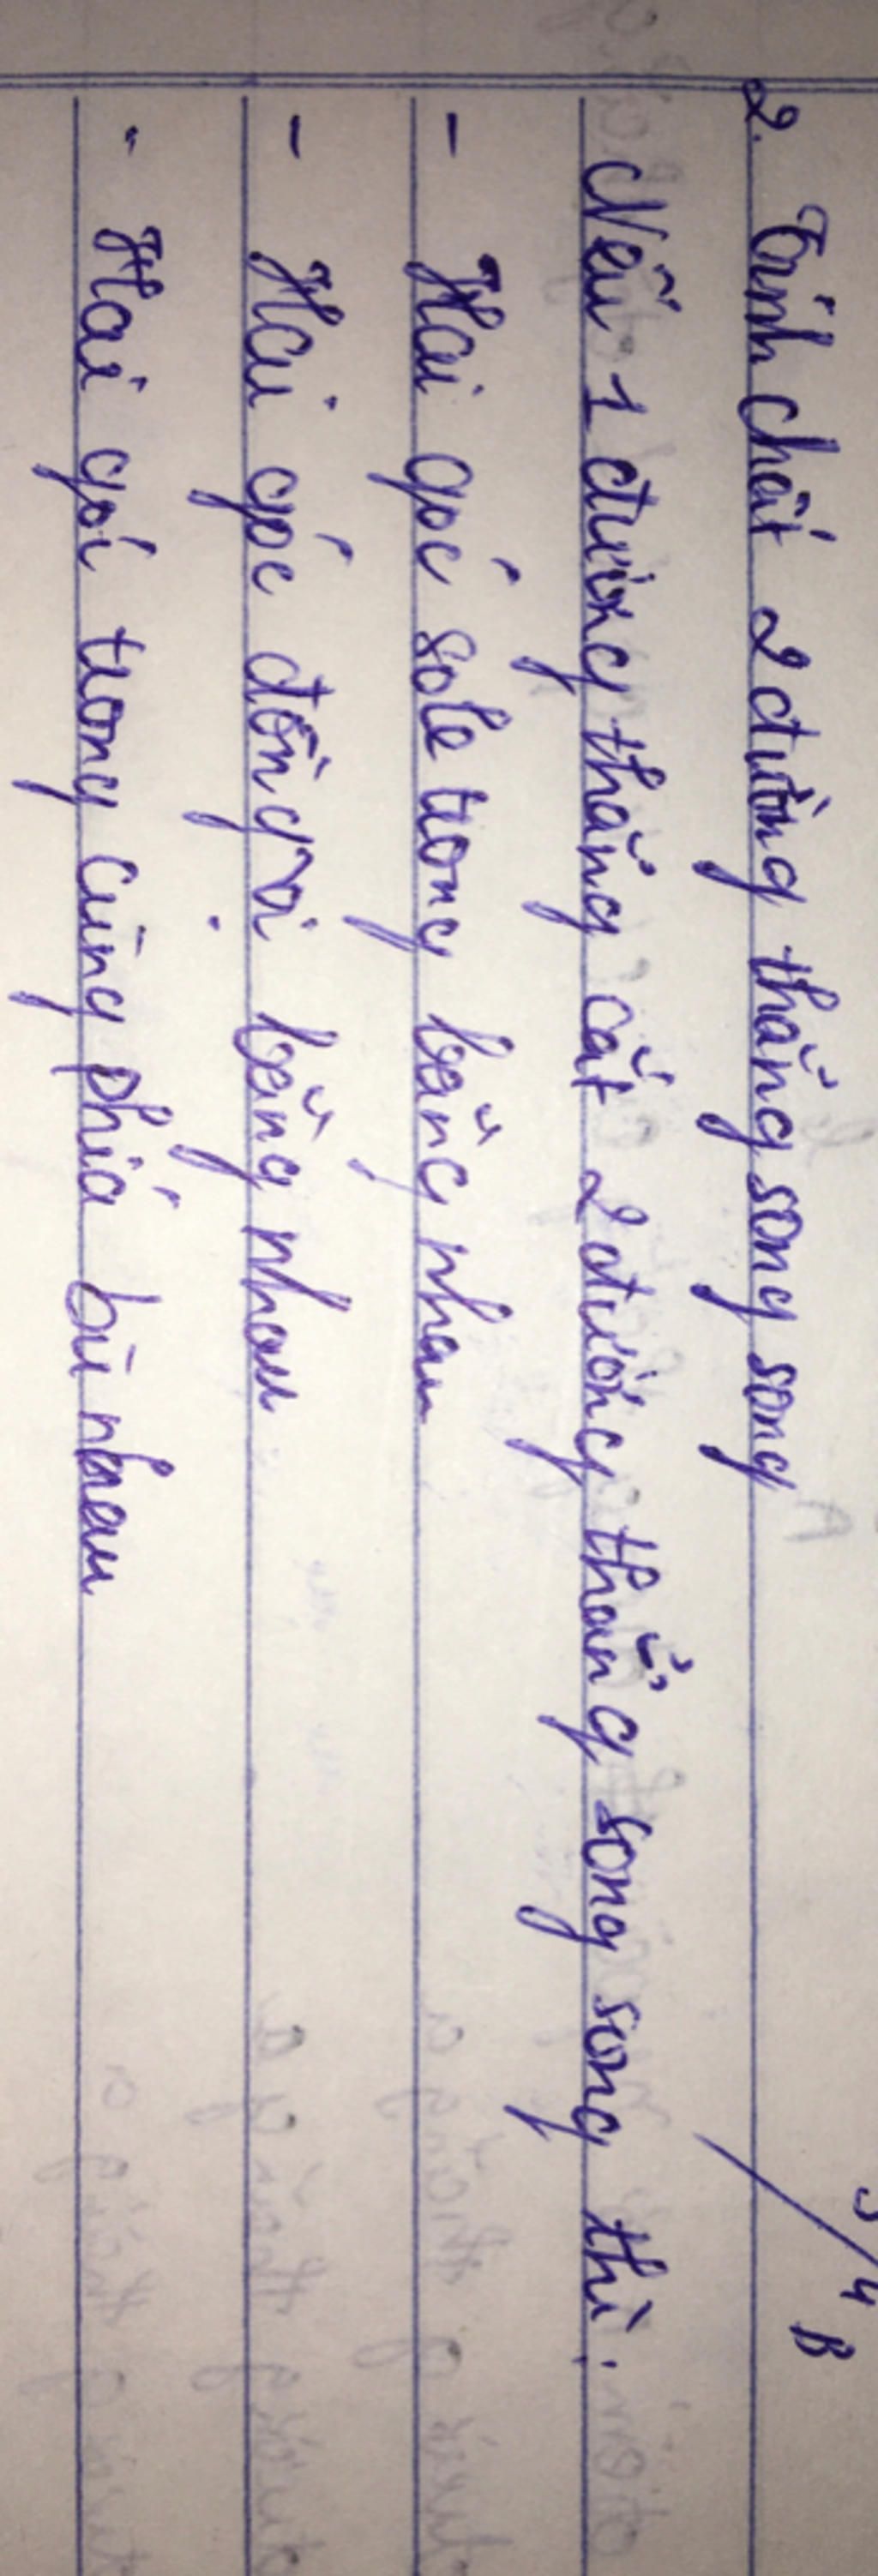 3 4 B
2. Tính chất 2 đường thẳng song song
Nếu 1 đường thẳng cắt 2 đường thẳng song song thì:
- Hai góc sole trong bằng nhau
- Hai góc đồng vị bằng nhau
- Hai góc trong cùng phía bù nhau